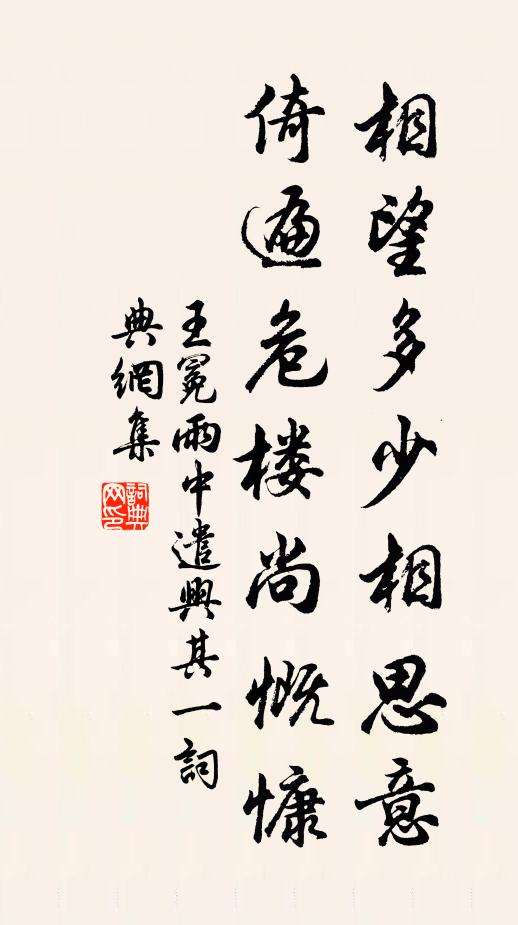 相望多少相思意
倚遍危楼尚慨慷
王冕雨中遣興其一詞
典網集
詞典网印